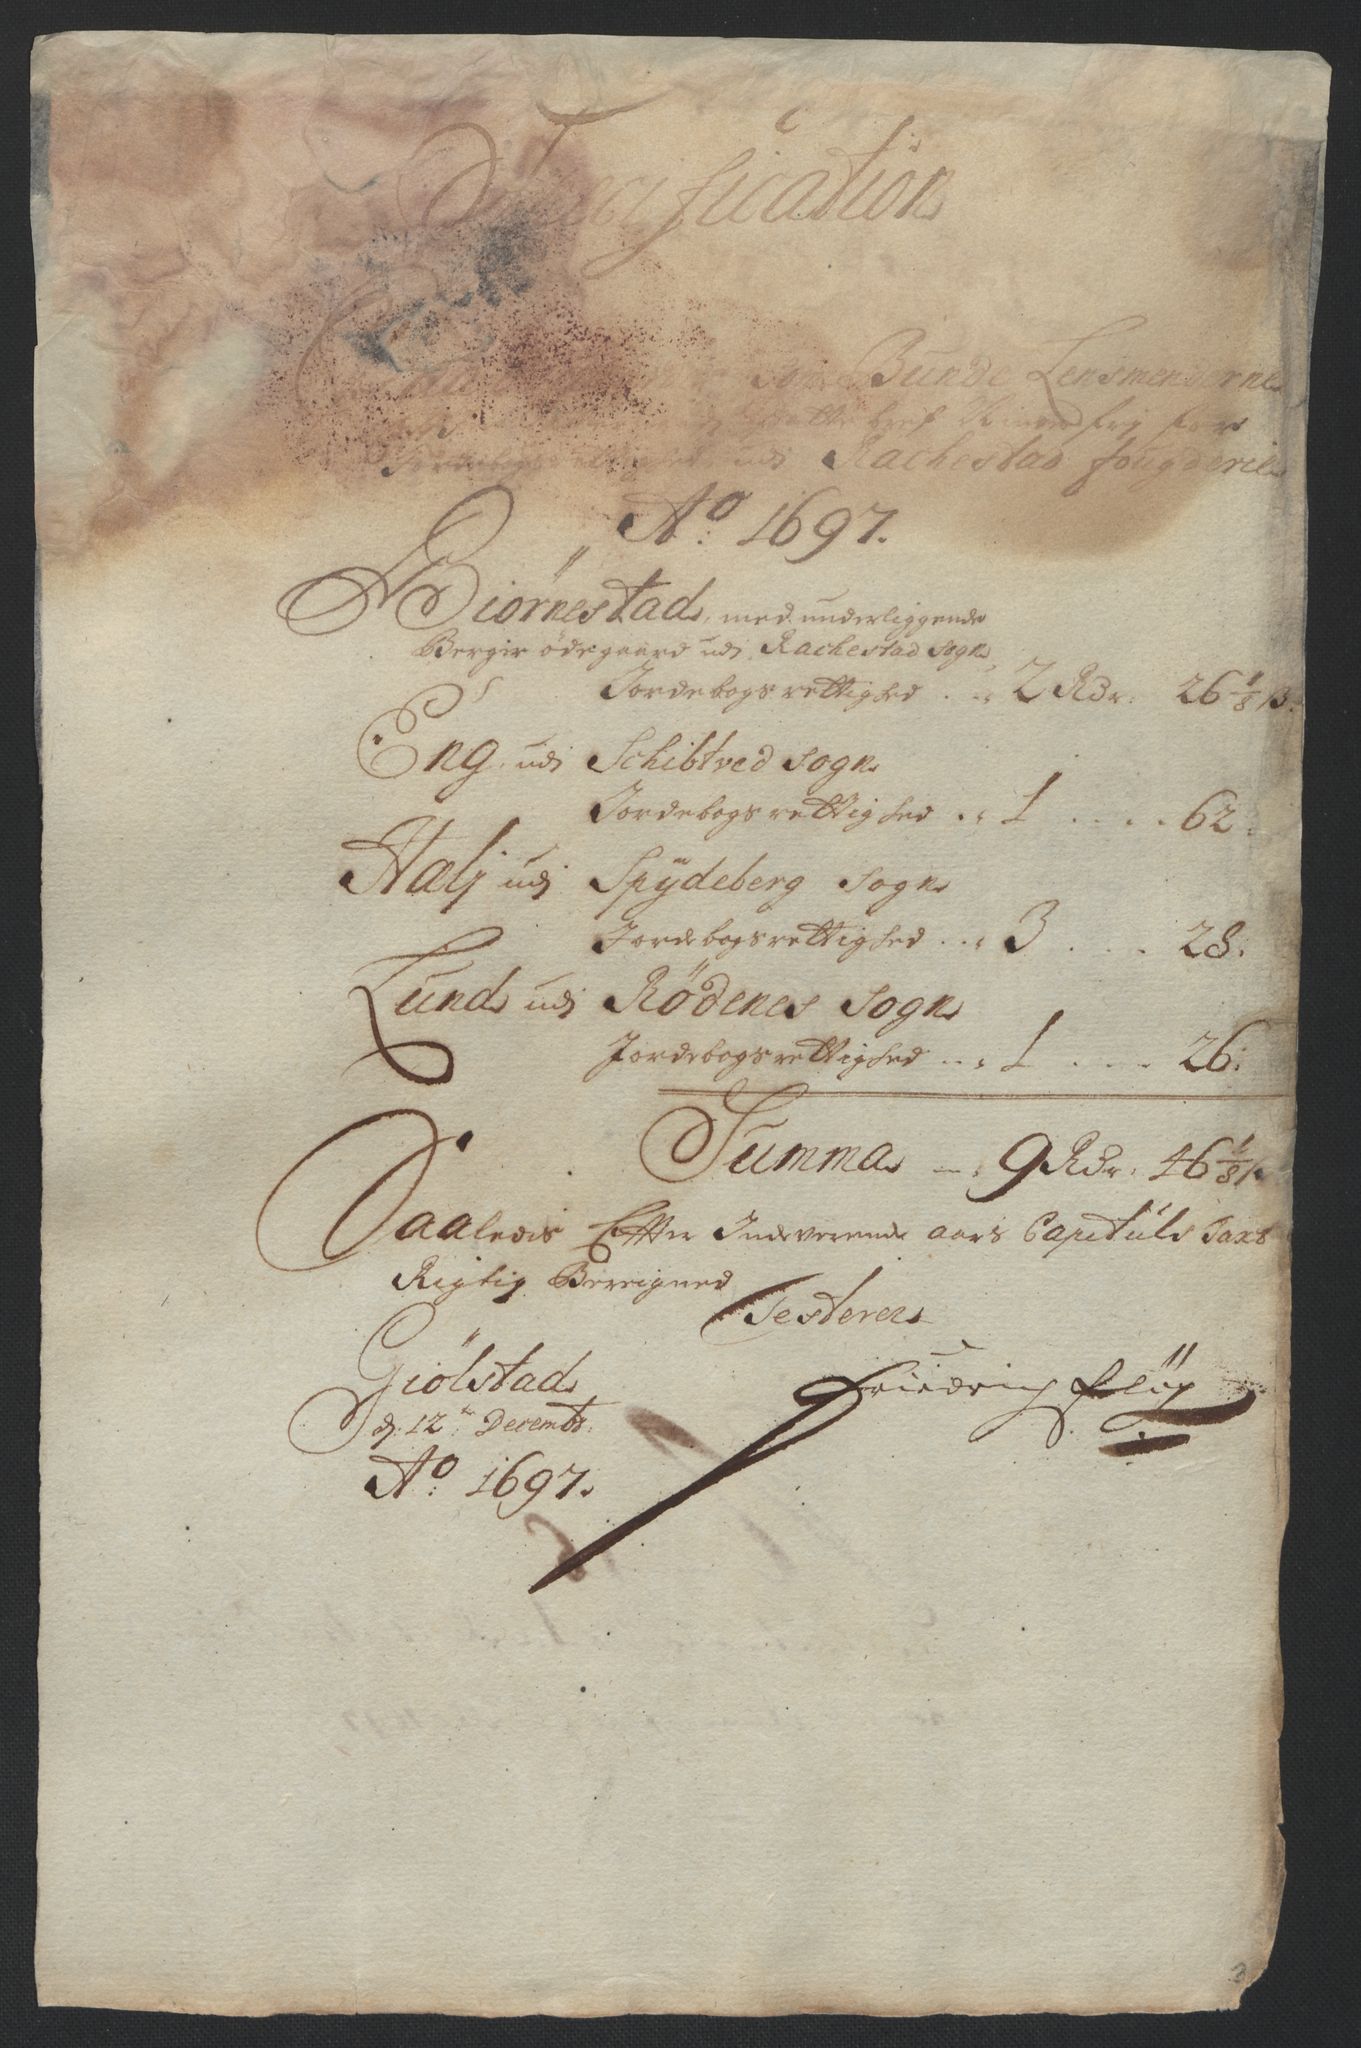 Specification
som Bunde Lensmenderne
fri for
Jordebogs udi Rachestad fougderie
Ao: 1697.
Biörnestad, med underliggende
Berger ödegaard udi Rachestad sogn,
Jordebogsrettighed ... 2 Rdr: 26 1/8 β:
Eng udi Schibtved sogn
Jordebogsrettighed ... 1 .... 62.
Halj udi Spÿdeberg sogn
Jordebogsrettighed ... 3 .... 28.
Lund udi Rödenes sogn
Jordebogsrettighed ... 1 .... 26:
Summa ... 9 Rdr: 46 1/8 β
Saaledis Effter Indeverende aars Capituls Taxt
Rigtig Bereigned
Testerer
Giölstad
d. 12te Decembr.
Ao: 1697.
Friedrich Plög
3